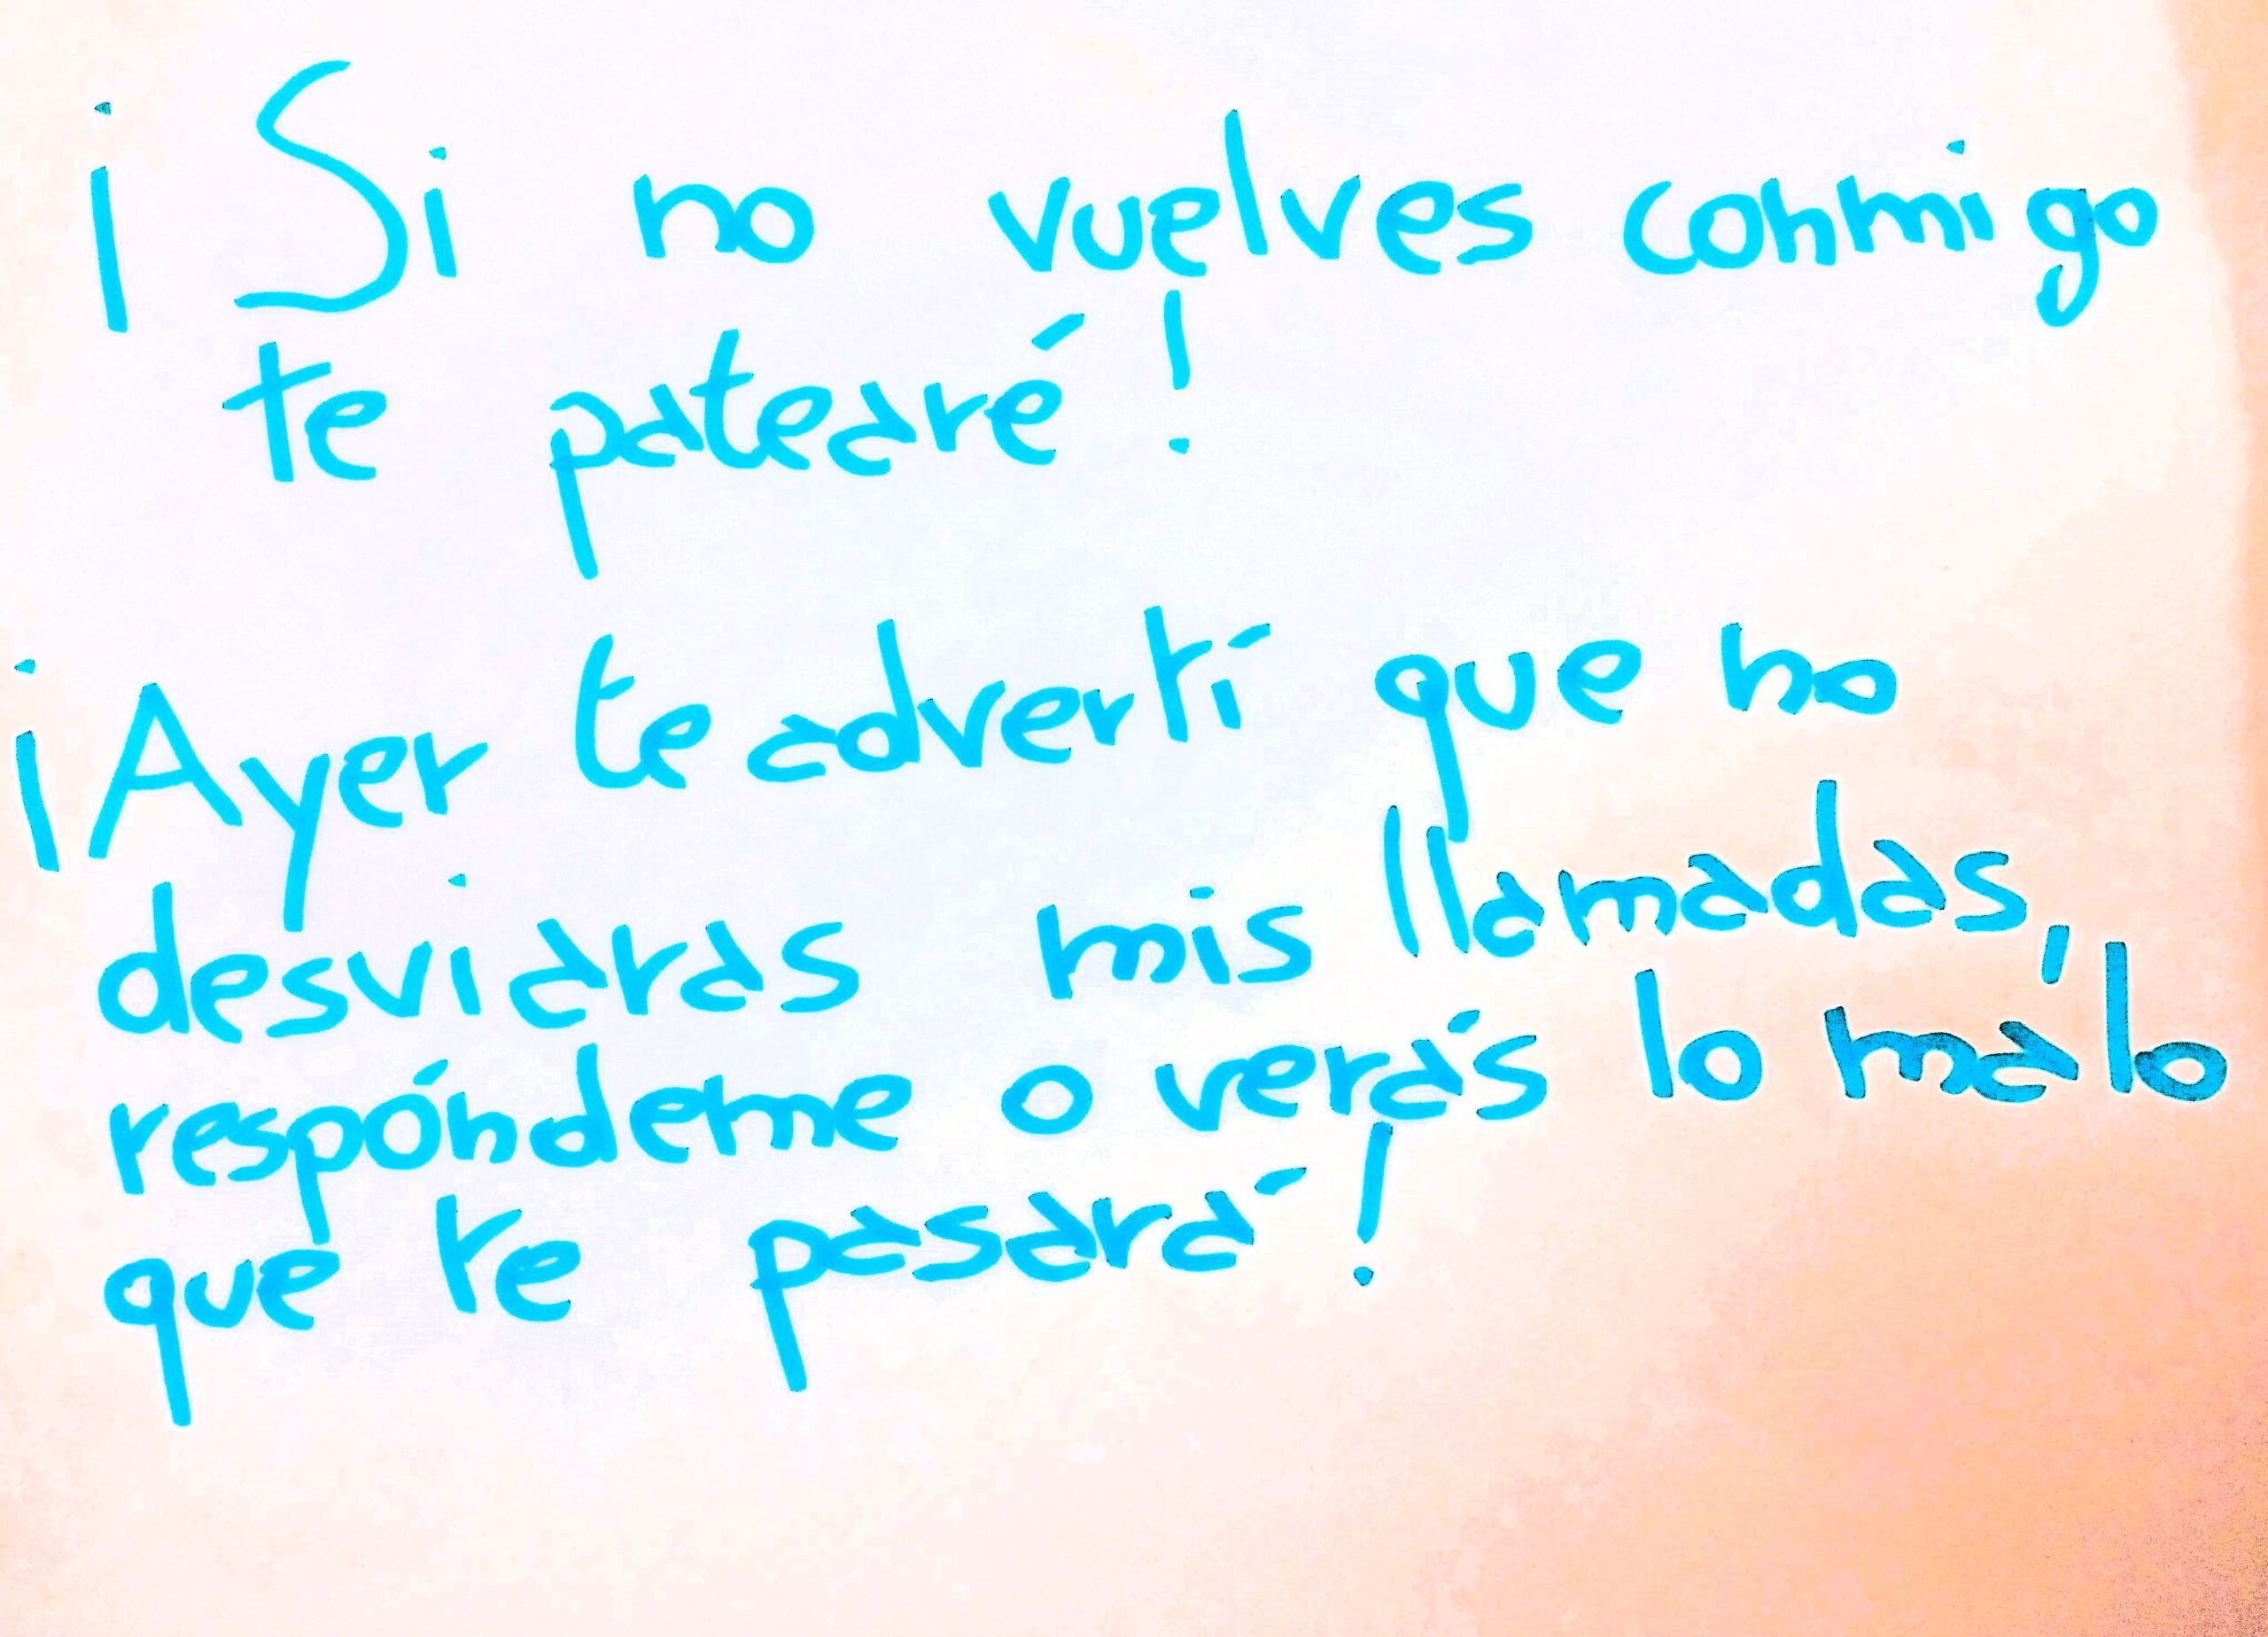 ¡Si no vuelves conmigo
te patearé!
¡Ayer te advertí que no
desviaras mis llamadas,
respóndeme o verás lo malo
que te pasará!